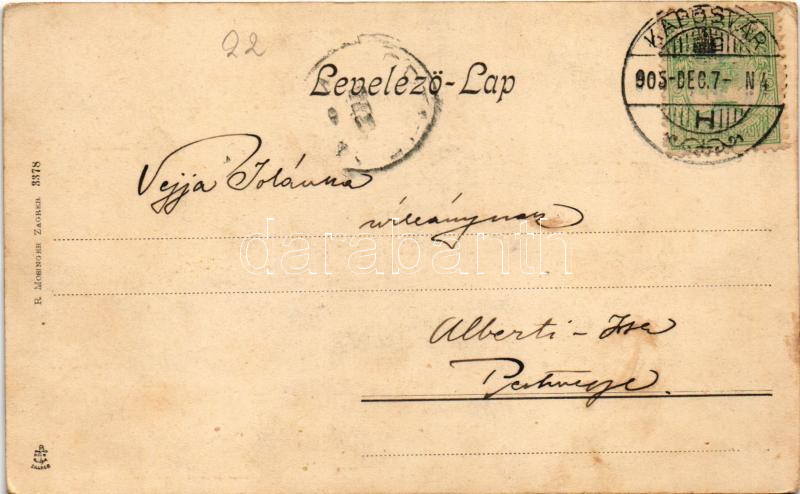 22
Levelező-Lap
KAPOSVÁR
905-DEC.7- N4
H
Vejja Jolánka
úrleánynak
darabanth
Alberti-Irsa
Pestmegye.
R. MOSINGER ZAGREB 3378
ZAGREB